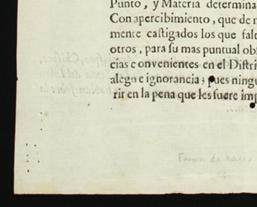 Punto, y Materia determina
Con apercibimiento, que de n
mente castigados los que falt
otros, para su mas puntual obs
cias convenientes en el Distri
alegue ignorancia; pues ningu
rir en la pena que les fuere imp